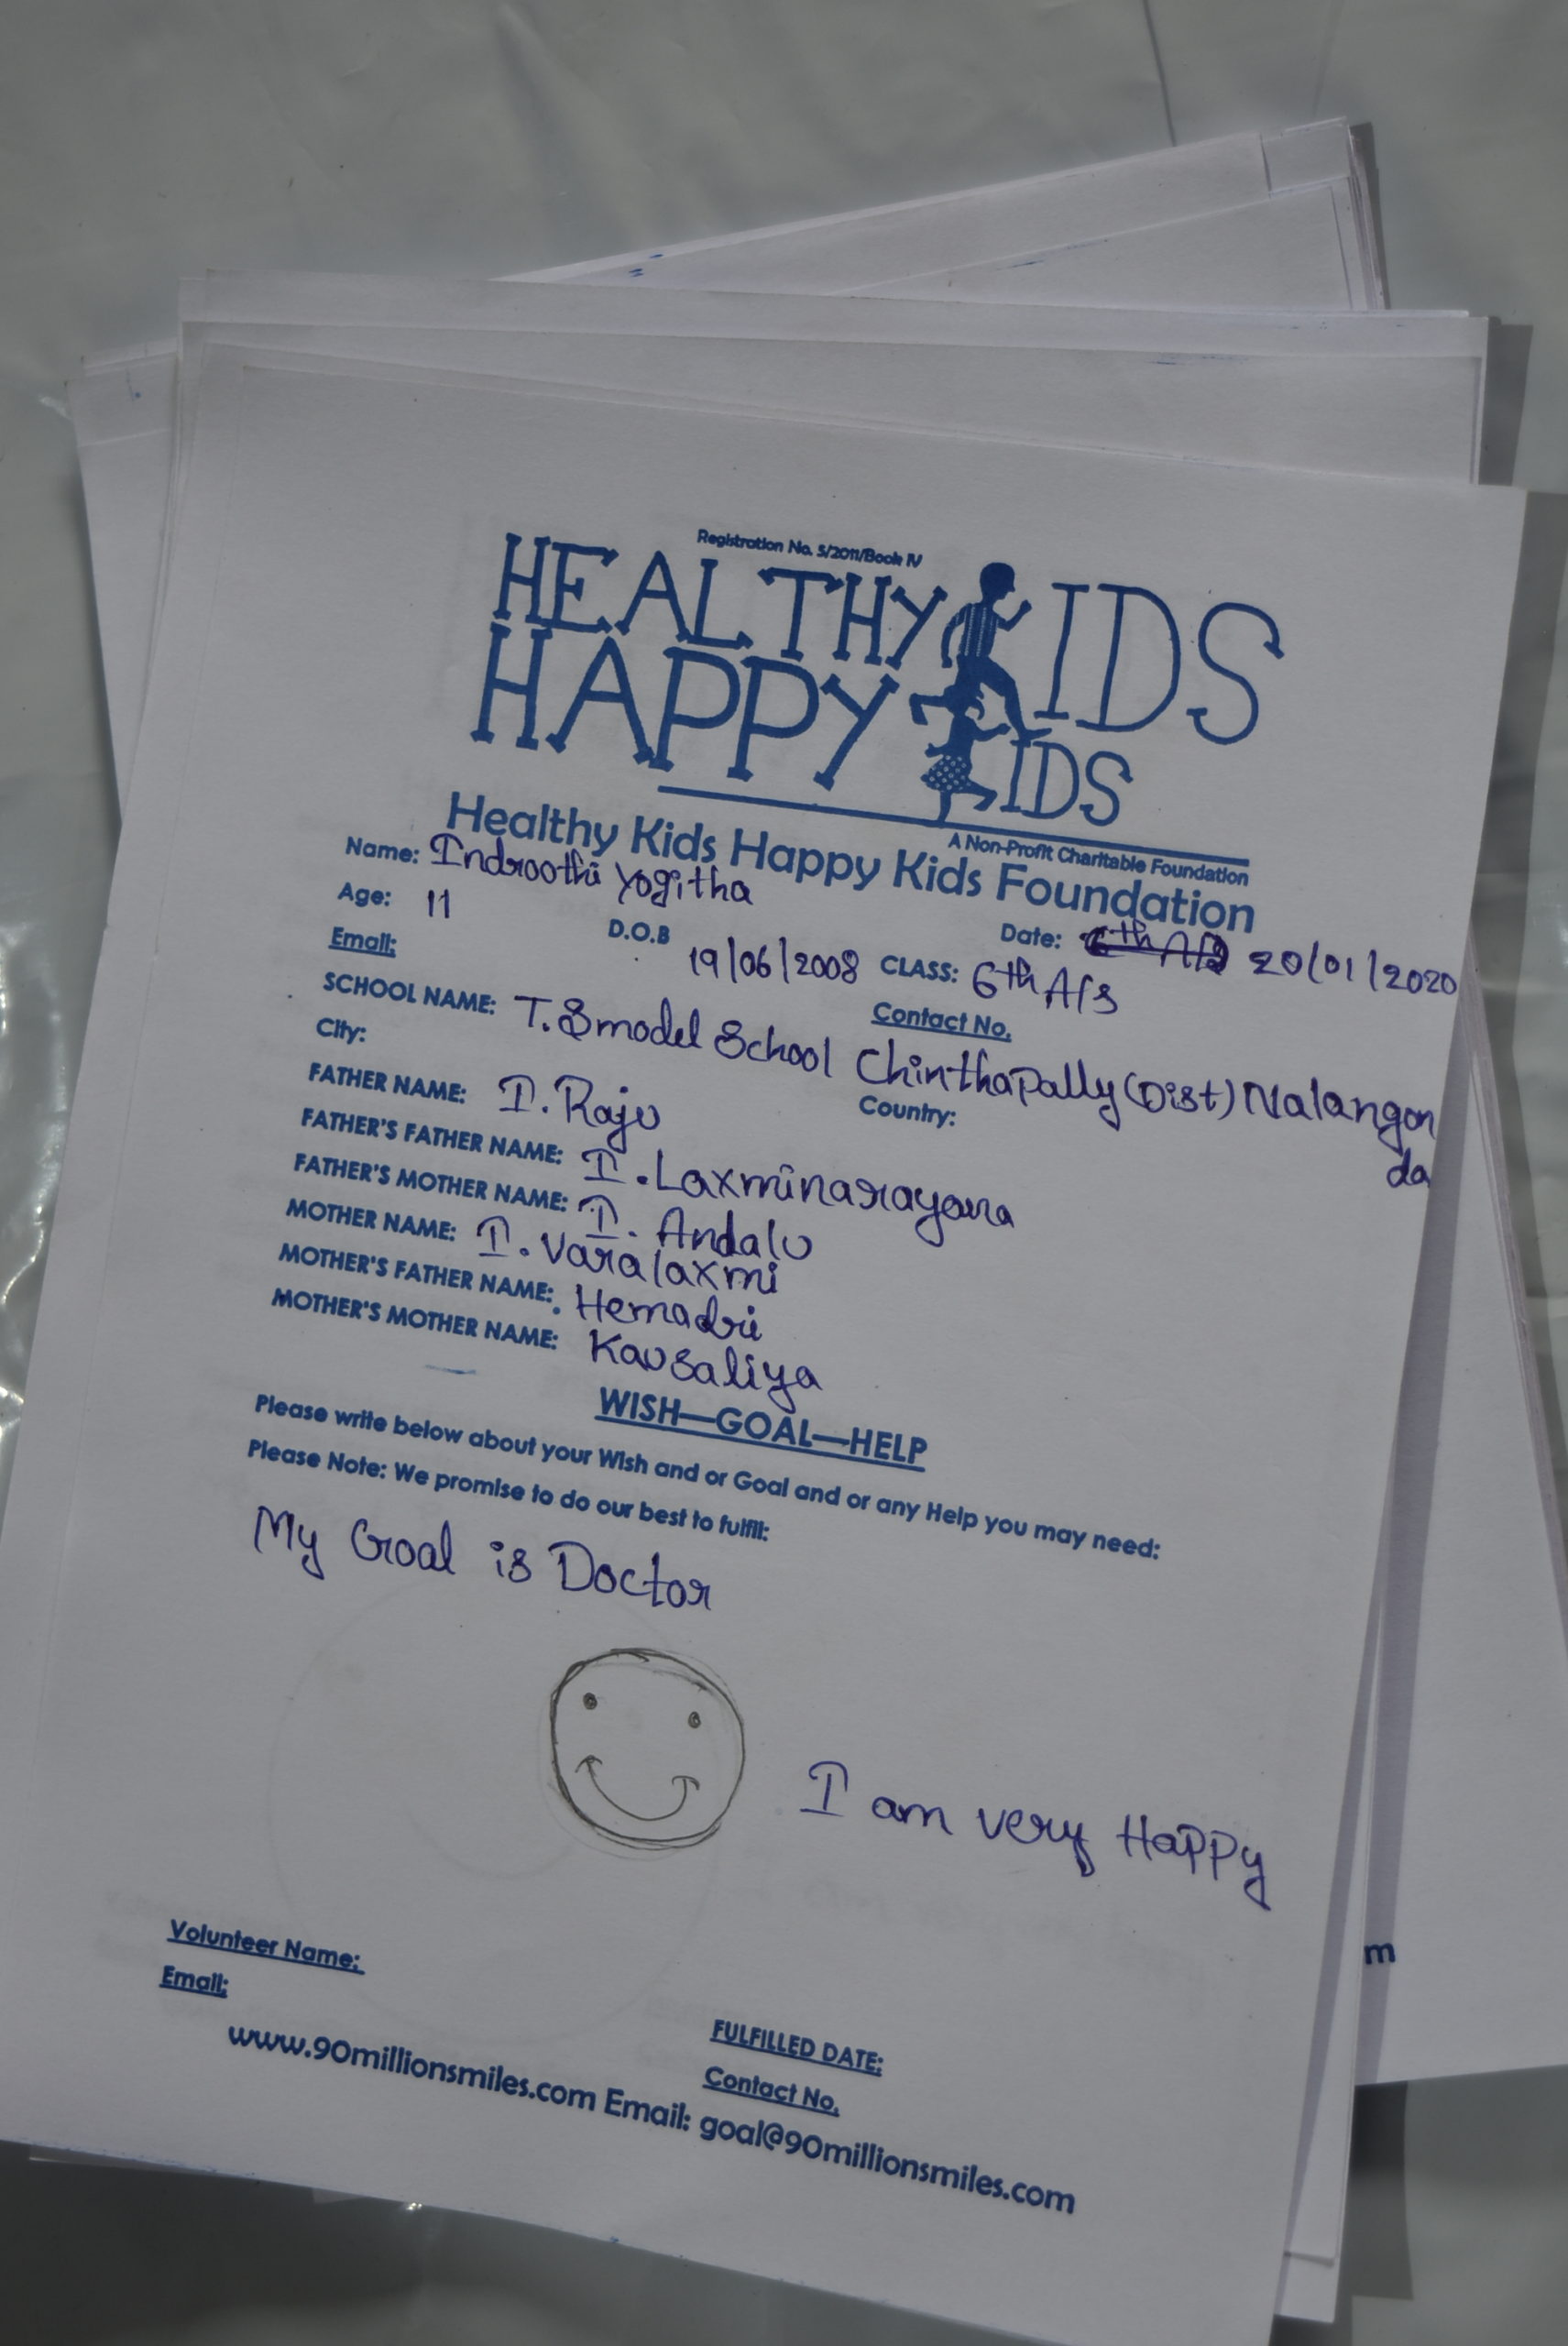 Registration No. 5/2011/Book IV
HEALTHY KIDS
HAPPY KIDS
A Non-Profit Charitable Foundation
Healthy Kids Happy Kids Foundation
Name: Indroothi Yogitha
Date: 20/01/2020
Age: 11 D.O.B 19/06/2008 CLASS: 6th A/s
Email: Contact No.
SCHOOL NAME: T.S model School Chinthapally (Dist) Nalangon
da
City: Country:
FATHER NAME: I. Raju
FATHER'S FATHER NAME: I. Laxminarayana
FATHER'S MOTHER NAME: I. Andalu
MOTHER NAME: I. Varalaxmi
MOTHER'S FATHER NAME: Hemadri
MOTHER'S MOTHER NAME: Kausaliya
WISH—GOAL—HELP
Please write below about your Wish and or Goal and or any Help you may need:
Please Note: We promise to do our best to fulfill:
My Goal is Doctor
I am very Happy
Volunteer Name: FULFILLED DATE:
Email: Contact No.
www.90millionsmiles.com Email: goal@90millionsmiles.com
m